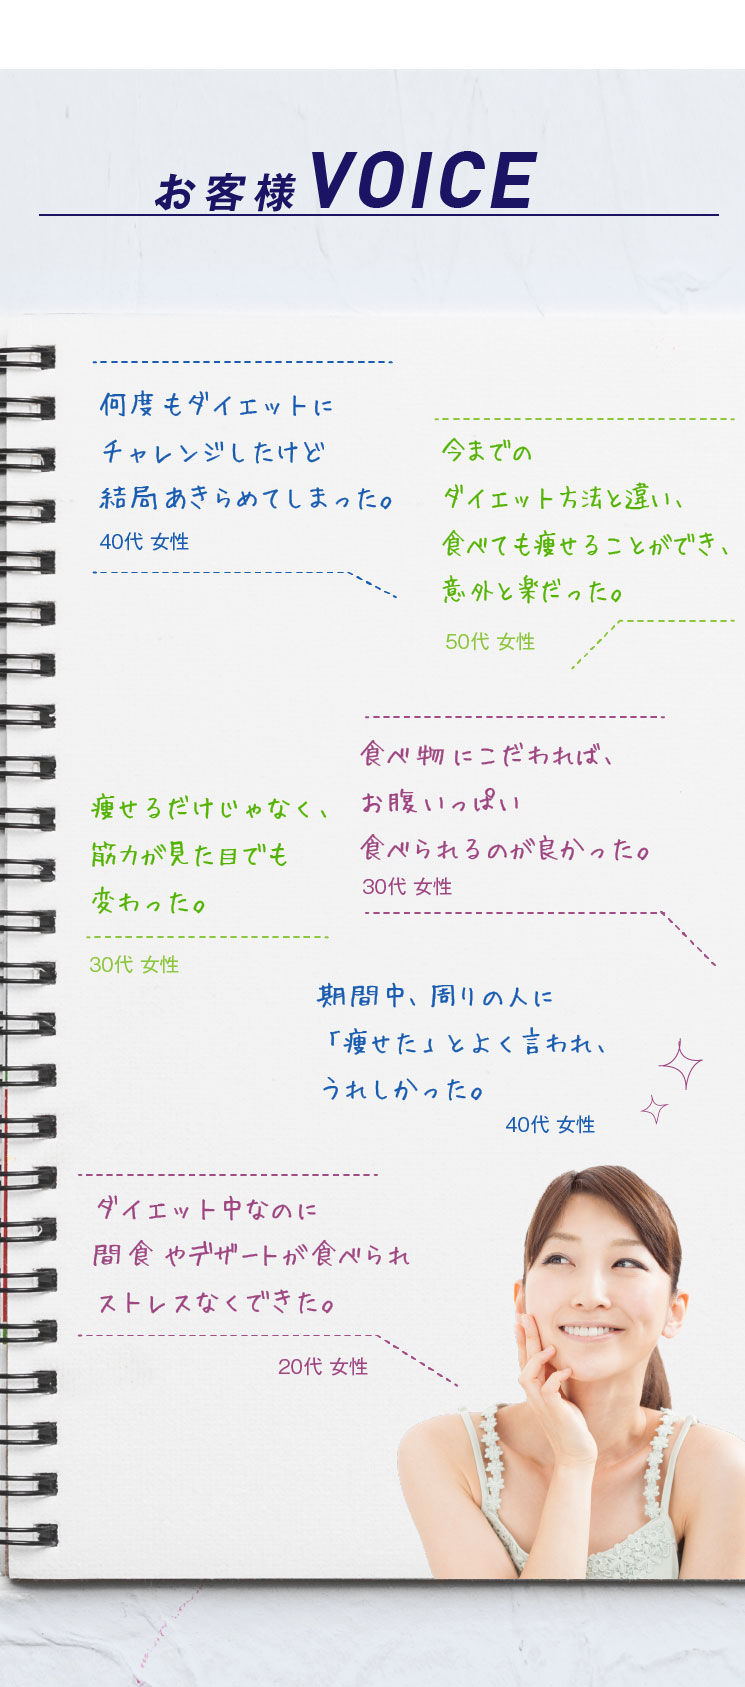 お客様 VOICE
何度もダイエットに
チャレンジしたけど
結局あきらめてしまった。
40代 女性
今までの
ダイエット方法と違い、
食べても痩せることができ、
意外と楽だった。
50代 女性
食べ物にこだわれば、
お腹いっぱい
食べられるのが良かった。
30代 女性
痩せるだけじゃなく、
筋力が見た目でも
変わった。
30代 女性
期間中、周りの人に
「痩せた」とよく言われ、
うれしかった。
40代 女性
ダイエット中なのに
間食やデザートが食べられ
ストレスなくできた。
20代 女性